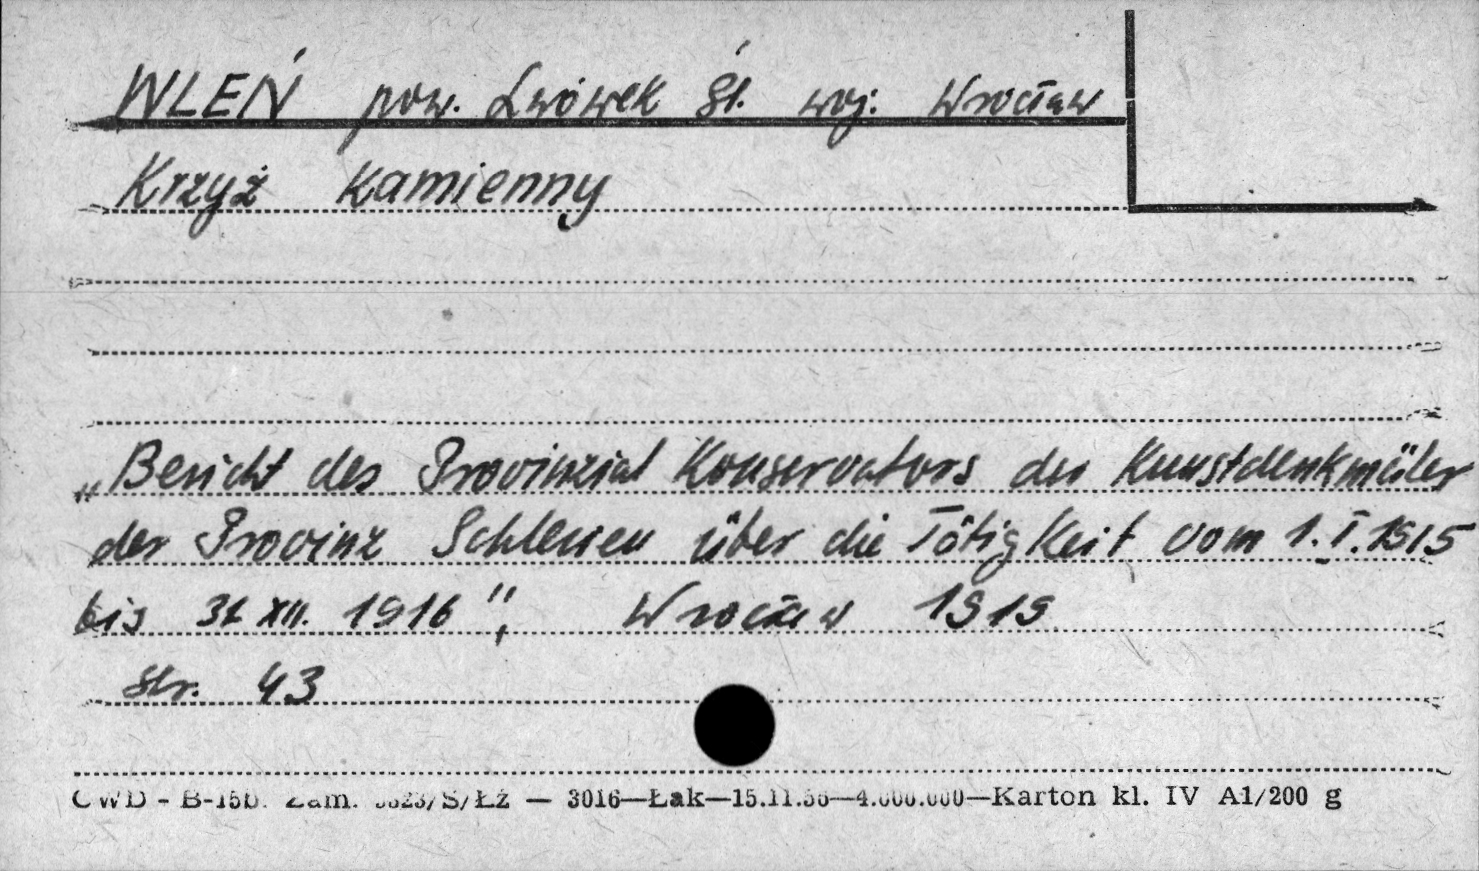 WLEŃ pow. Lwówek Śl. woj: Wrocław
Krzyż Kamienny
„Bericht des Provinzial Konservators der Kunstdenkmäler
der Provinz Schlesien über die Tätigkeit vom 1.I.1915
bis 31 XII. 1916", Wrocław 1919
Str. 43
CWD - B-15b. Zam. /S/Łż — 3016—Łak—15.11.56—4.000.000—Karton kl. IV A1/200 g